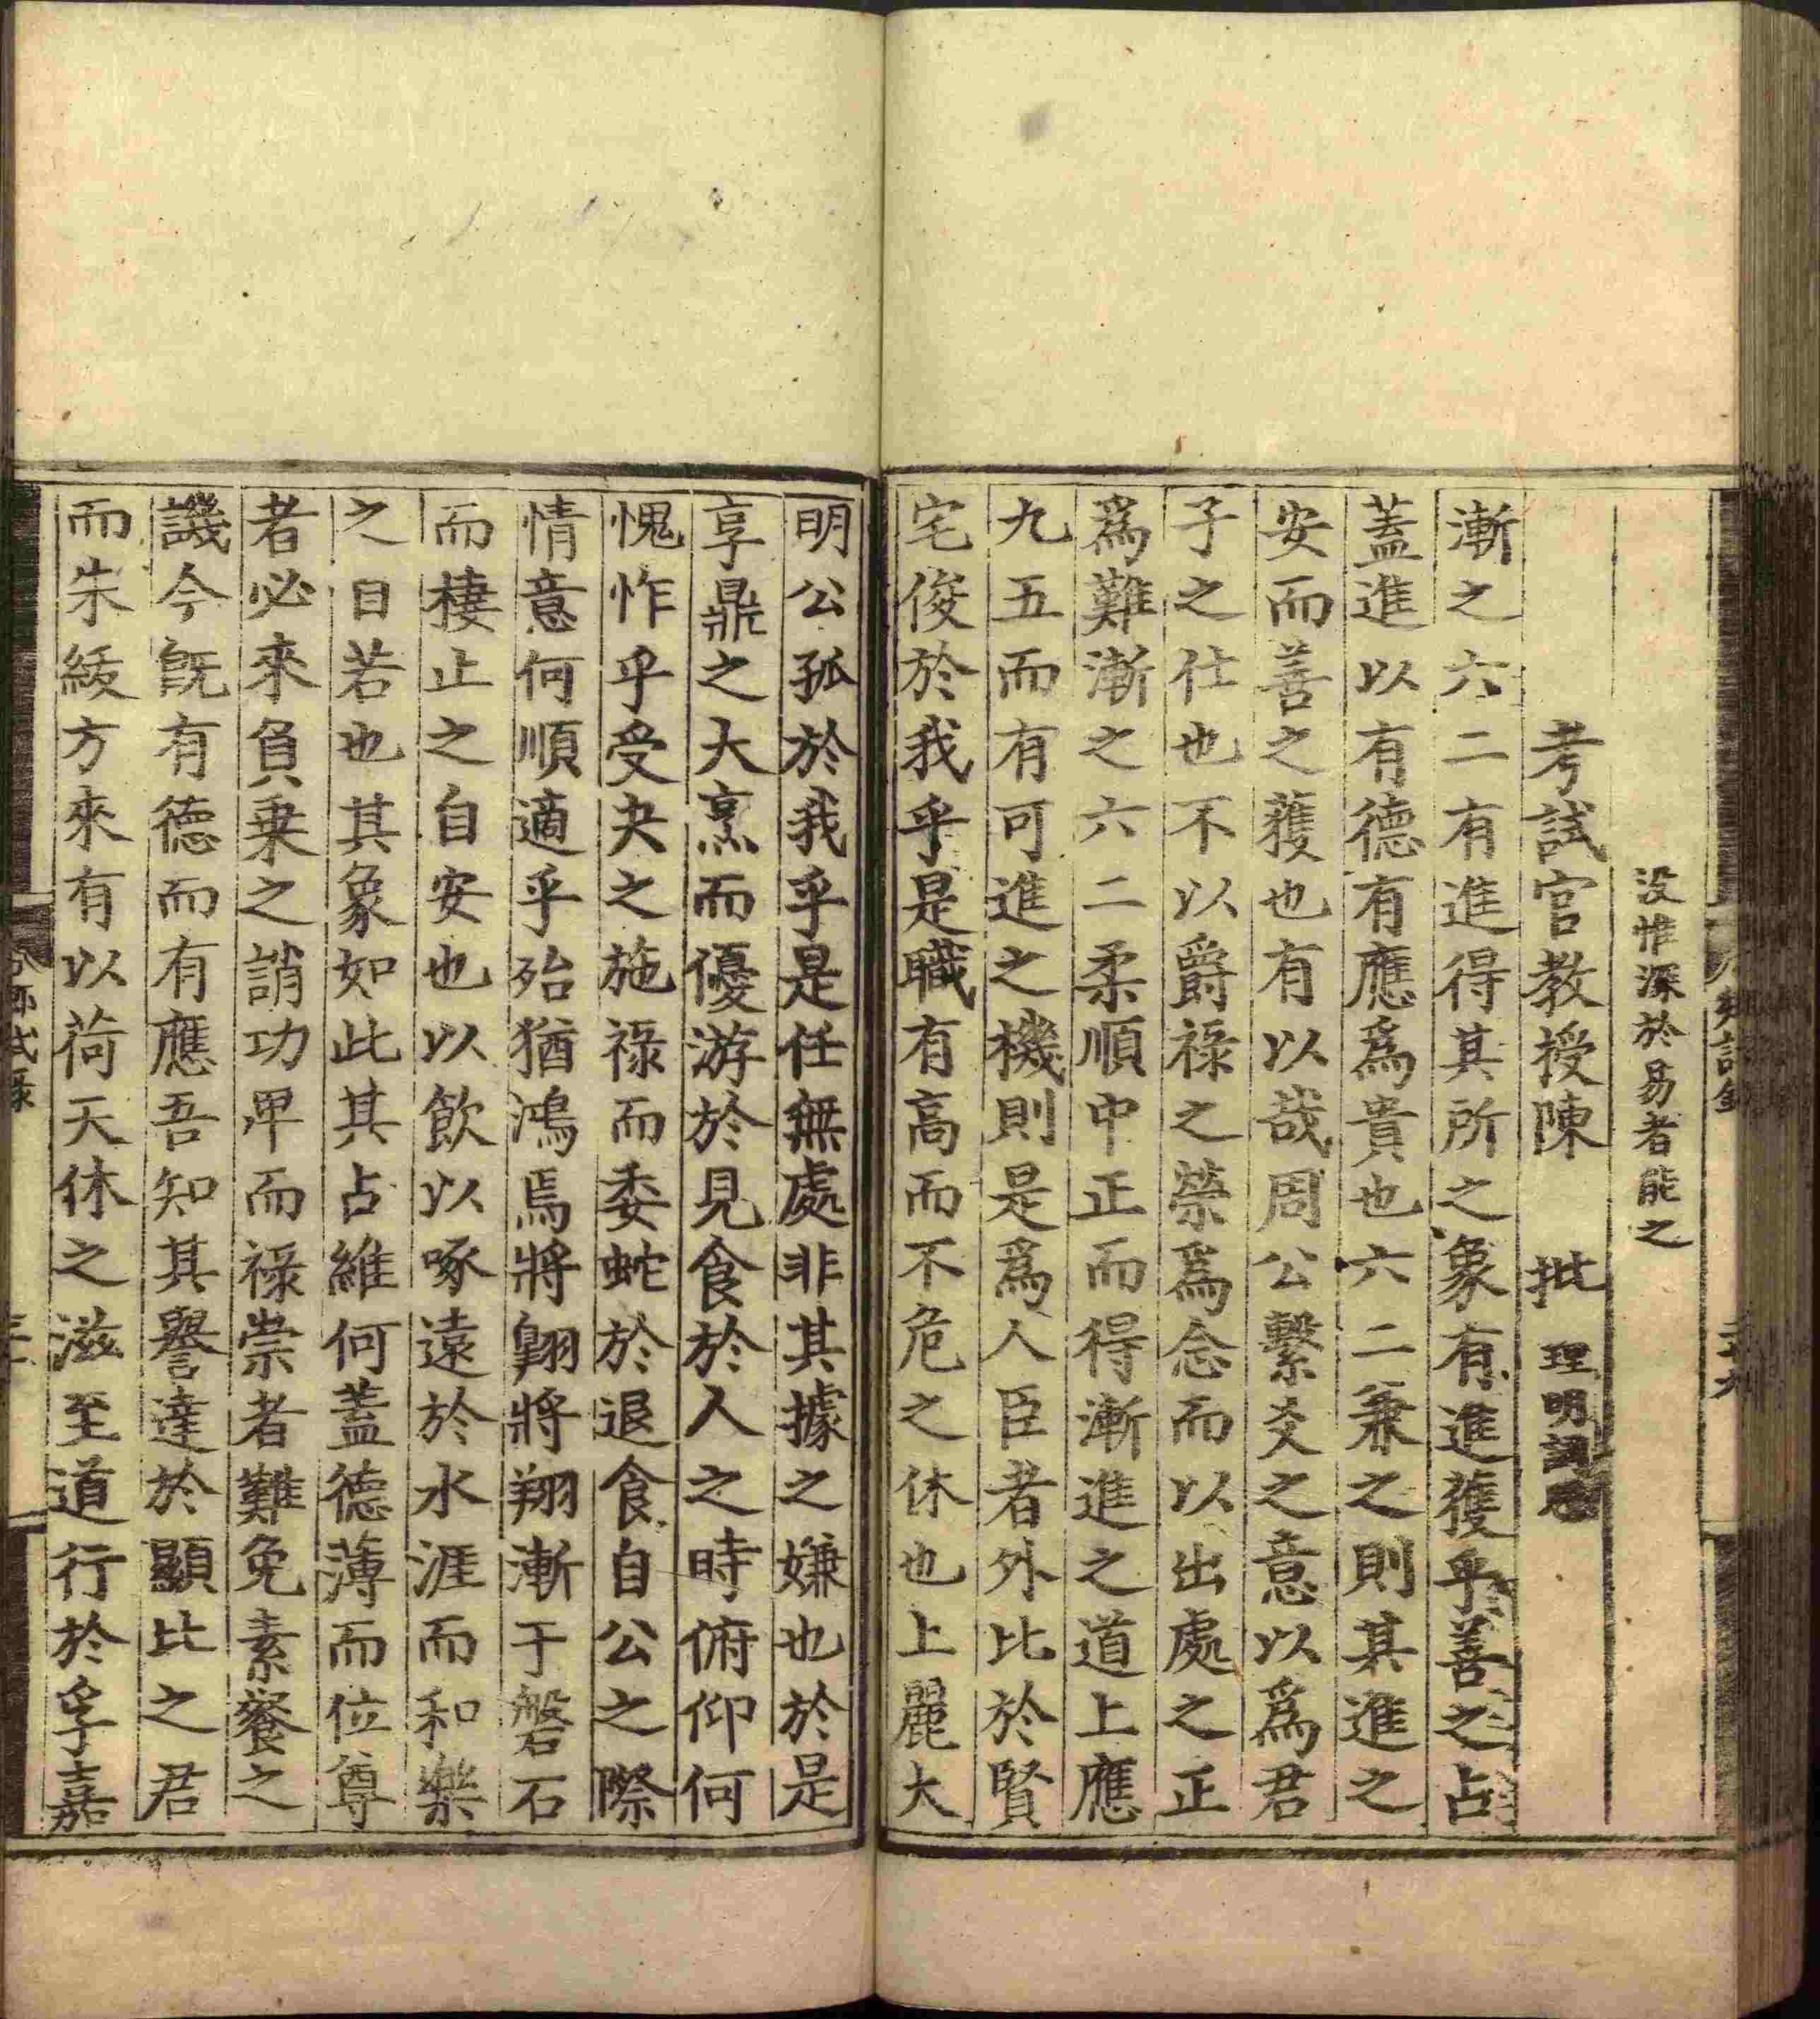 没惟深於易者能之
考試官教授陳　批　理明詞
漸之六二有進得其所之象有進獲乎善之占
蓋進以有德有應爲貴也六二兼之則其進之
安而善之獲也有以哉周公繫爻之意以爲君
子之仕也不以爵祿之榮爲念而以出處之正
爲難漸之六二柔順中正而得漸進之道上應
九五而有可進之機則是爲人臣者外比於賢
宅俊於我乎是職有高而不危之休也上麗大
明公孤於我乎是任無處非其據之嫌也於是
享鼎之大烹而優游於見食於人之時俯仰何
愧怍乎受夬之施祿而委蛇於退食自公之際
情意何順適乎殆猶鴻焉將翺將翔漸于磐石
而棲止之自安也以飲以啄遠於水涯而和樂
之自若也其象如此其占維何蓋德薄而位尊
者必來負乗之誚功畢而祿崇者難免素餐之
譏今旣有德而有應吾知其譽達於顯比之君
而朱紱方來有以荷天休之滋至道行於孚嘉